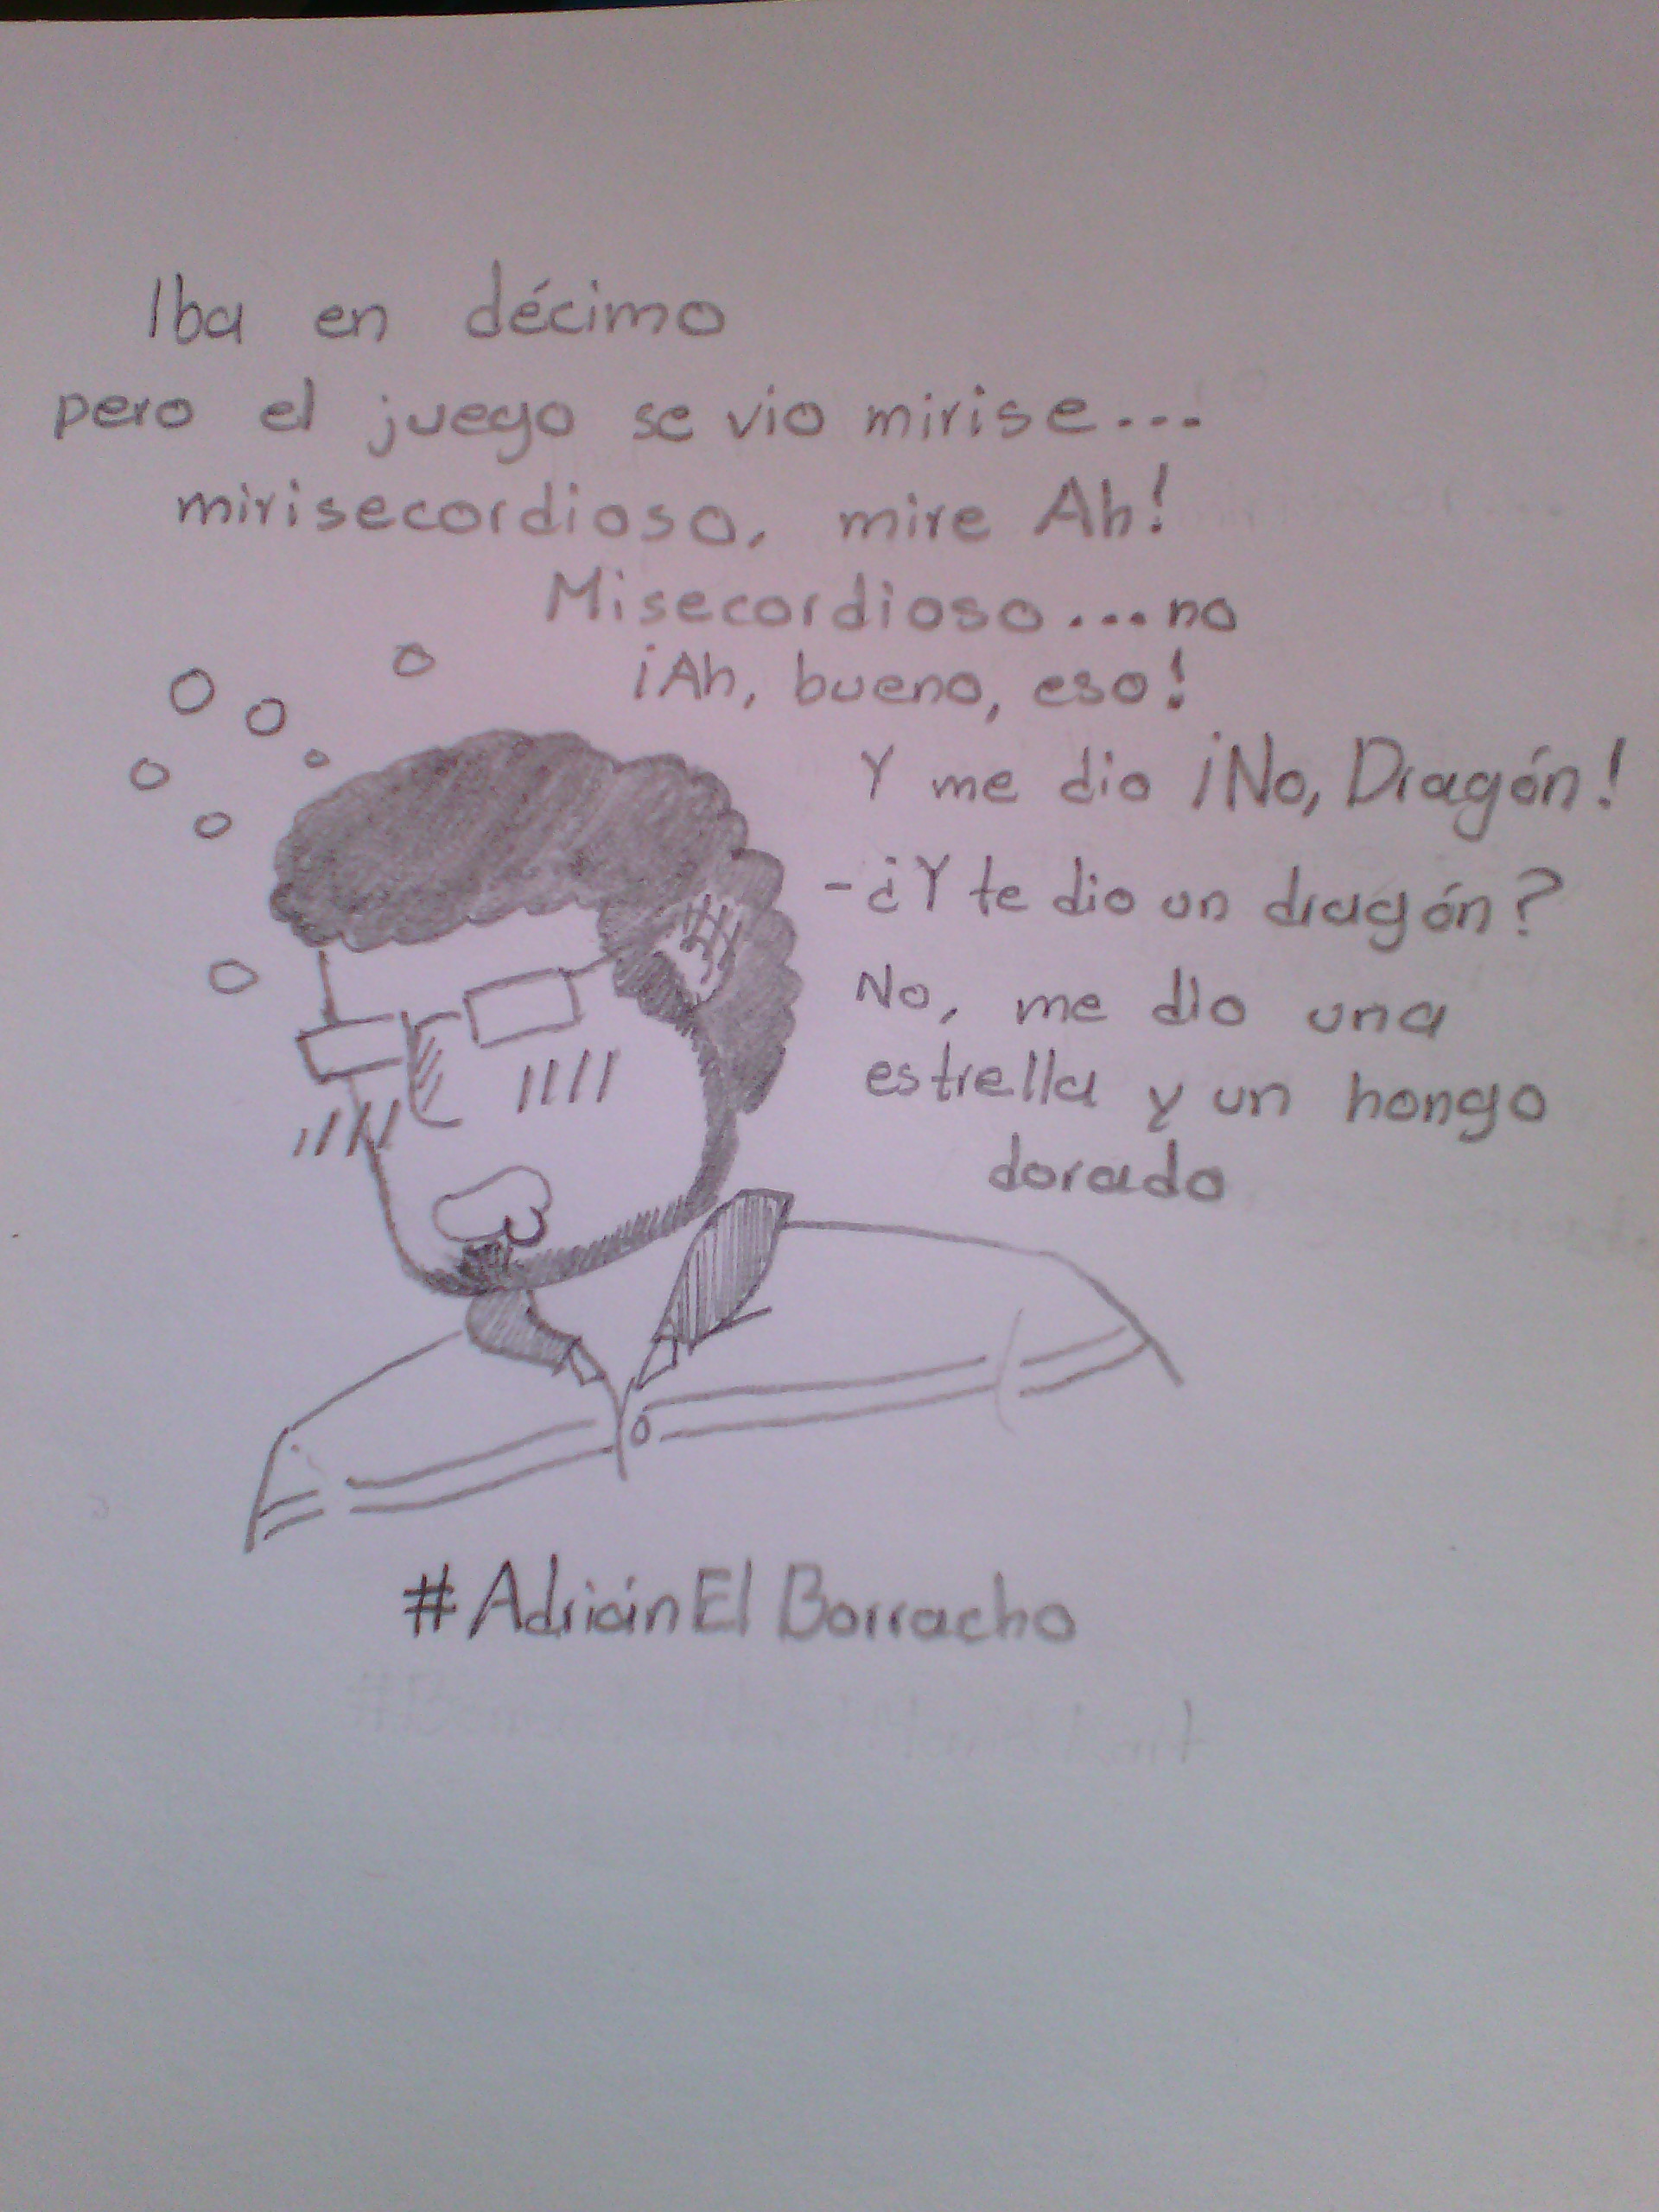 Iba en décimo
pero el juego se vio mirise...
mirisecordioso, mire Ah!
Misecordioso...no
¡Ah, bueno, eso!
Y me dio ¡No, Dragón!
-¿Y te dio un dragón?
No, me dio una
estrella y un hongo
dorado
#AdriánEl Borracho